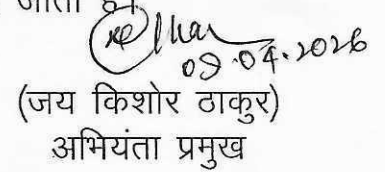 जाता है।
09.04.2026
(जय किशोर ठाकुर)
अभियंता प्रमुख